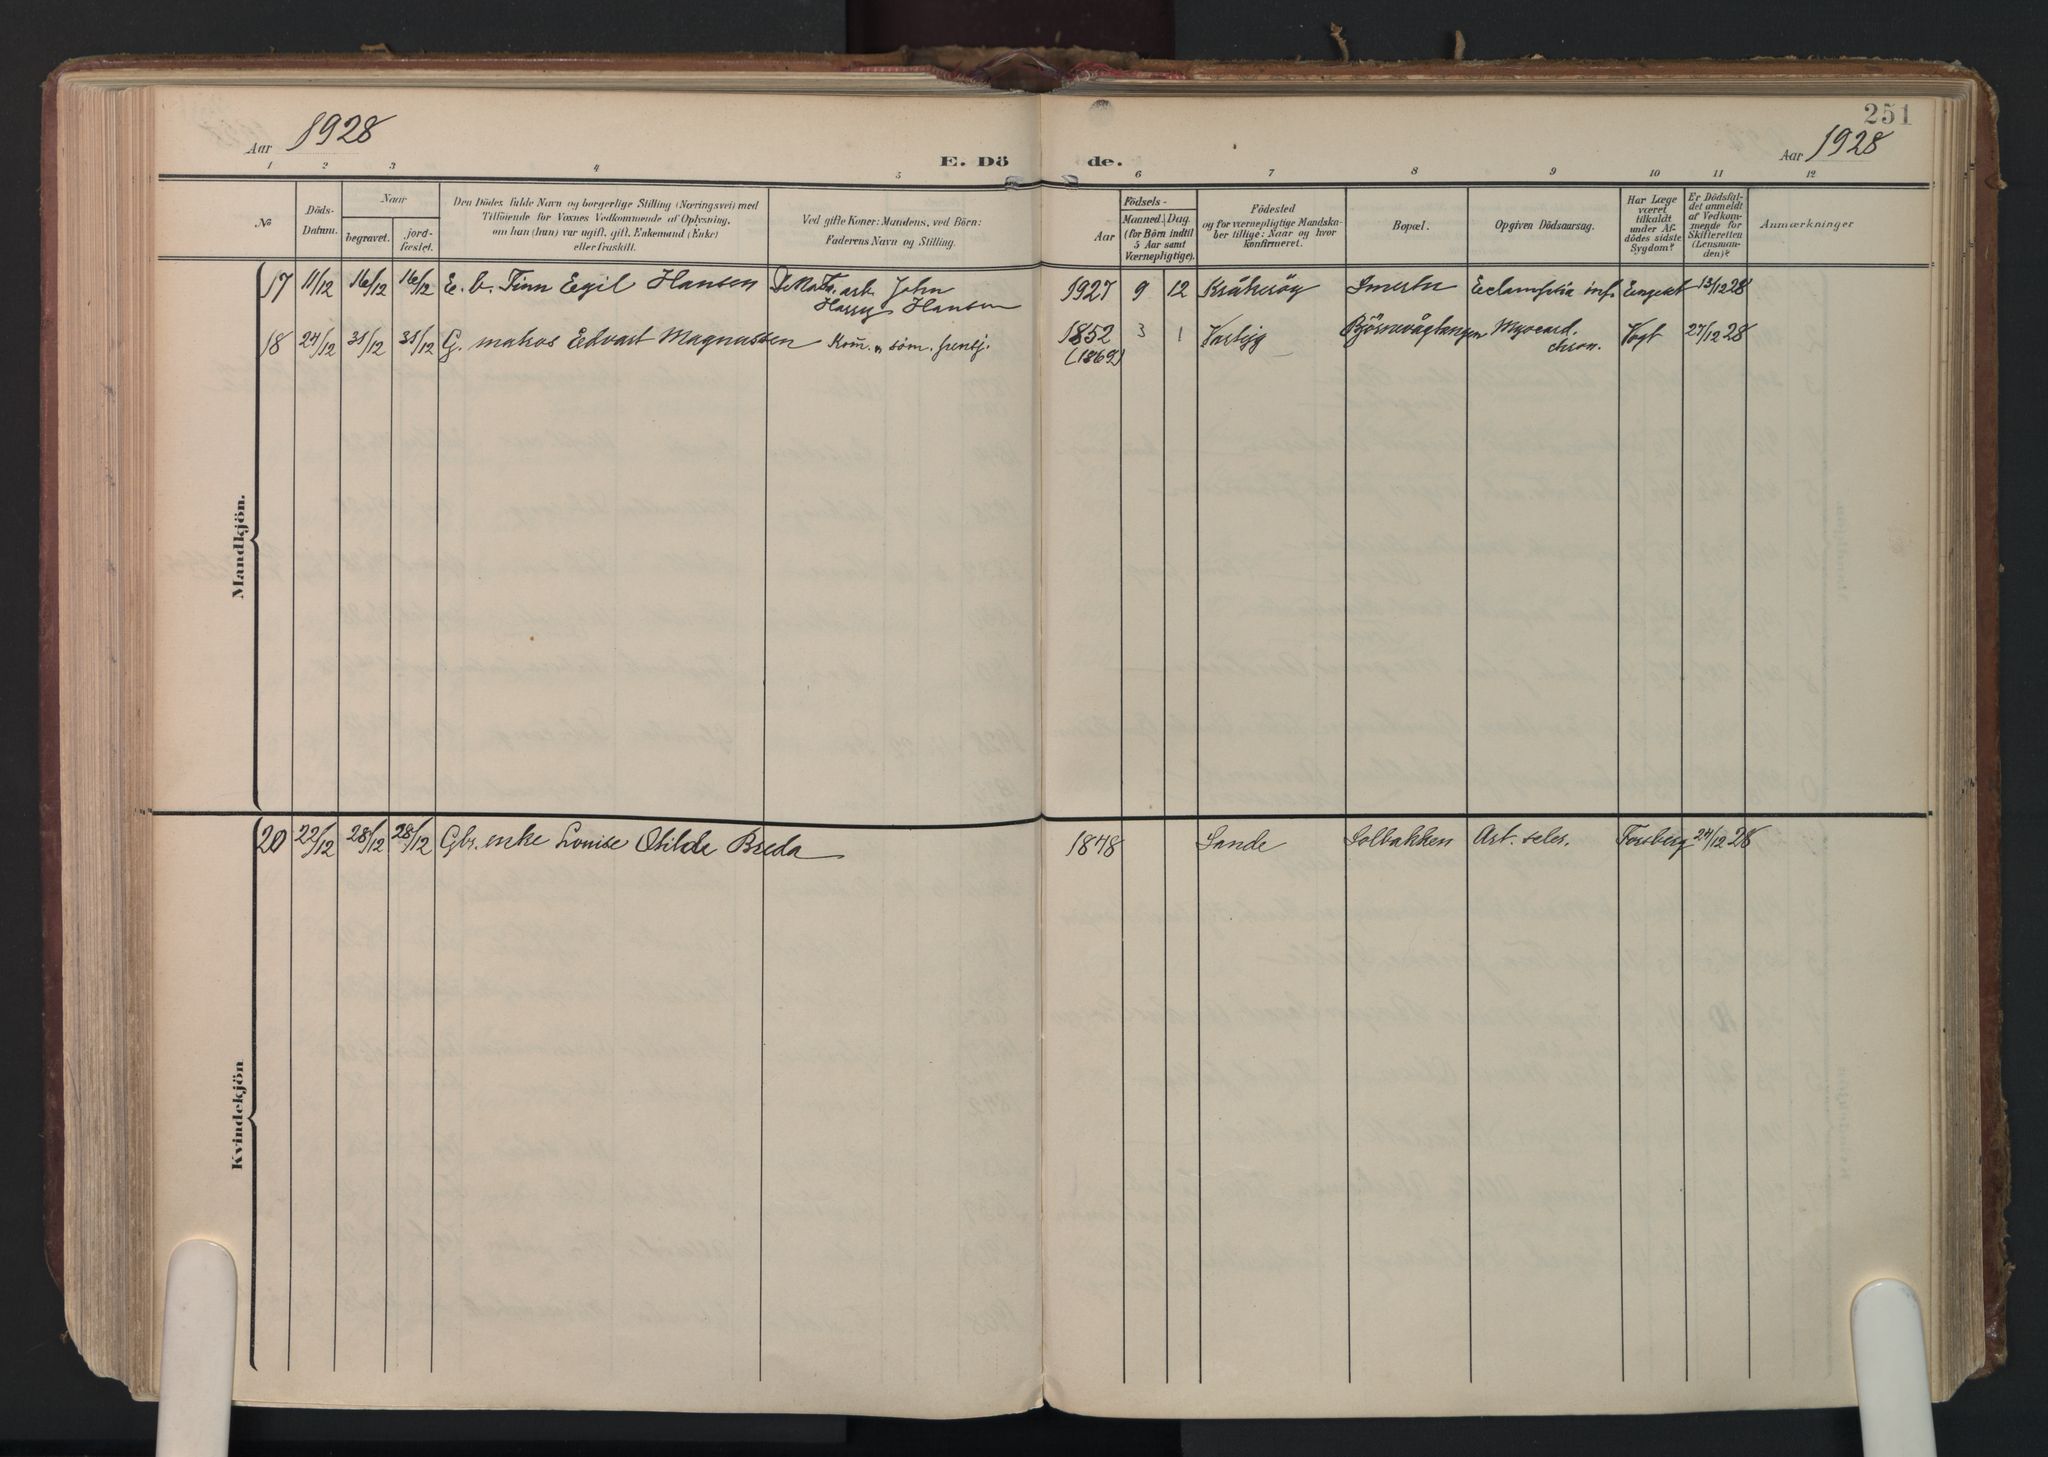 251
Aar 1928
Aar 1928
E. Dö de.
1 2 3 4 5 6 7 8 9 10 11 12
No
Döds-
Datum.
Naar
begravet.
jord-
fæstet.
Den Dödes fulde Navn og borgerlige Stilling (Næringsvei) med
Tilföiende for Voxnes Vedkommende af Oplysning,
om han (hun) var ugift, gift, Enkemand (Enke)
eller fraskilt.
Ved gifte Koner: Mandens, ved Börn:
Faderens Navn og Stilling.
Aar
Födsels-
Maaned. Dag.
(for Börn indtil
5 Aar samt
Værnepligtige).
Födested
og for værnepligtige Mandska-
ber tillige: Naar og hvor
konfirmeret.
Bopæl.
Opgiven Dödsaarsag.
Har Læge
været
tilkaldt
under Af-
dödes sidste
Sygdom?
Er Dödsfal-
det anmeldt
af Vedkom-
mende for
Skifteretten
(Lensman-
den)?
Anmærkninger
Mandkjön.
17 11/12 16/12 16/12 E. b. Finn Egil Hansen arb. John 1927 9 12 Kråkeröy Smertu Eclampsia inf. 13/12 28
Harry Hansen
18 24/12 31/12 31/12 G. matros Edvart Magnussen Kom. söm. 1852 3 1 Varteig Björnevågtangen Myocard. Vogt 27/12 28
(1862) chron.
Kvindekjön
20 22/12 28/12 28/12 Gbr. enke Lovise Otilde Breda 1848 Sande Solbakken Art. scler. Forsberg 24/12 28